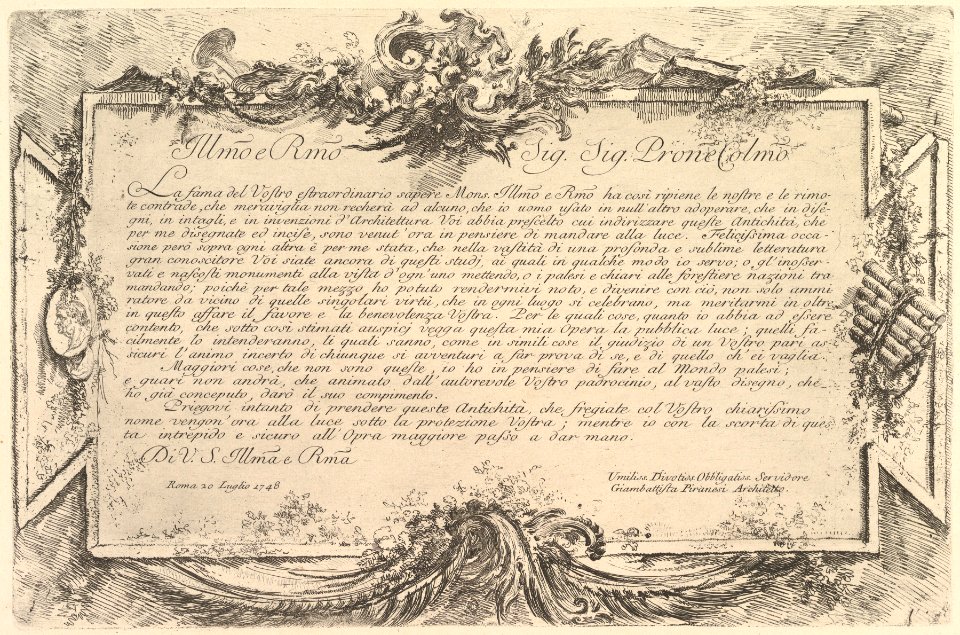 Illm̃o e Rm̃o Sig. Sig. Pron̄e Colm̃o
La fama del Vostro estraordinario sapere, Mons. Illm̃o e Rm̃o ha così ripiene le nostre e le rimo-
te contrade, che meraviglia non recherà ad alcuno, che io uomo usato in null'altro adoperare, che in dise-
gni, in intagli, e in invenzioni d'Architettura Voi abbia prescelto cui indirizzare queste Antichità, che
per me disegnate ed incise, sono venut'ora in pensiere di mandare alla luce. Felicissima occa-
sione però sopra ogni altra è per me stata, che nella vastità di una profonda e sublime letteratura
gran conoscitore Voi siate ancora di questi studj, ai quali in qualche modo io servo; o, gl'inosser-
vati e nascosti monumenti alla vista d'ogn'uno mettendo, o i palesi e chiari alle forestiere nazioni tra
mandando; poichè per tale mezzo ho potuto rendermivi noto, e divenire con ciò, non solo ammi
ratore da vicino di quelle singolari virtù, che in ogni luogo si celebrano, ma meritarmi in oltre
in questo affare il favore e la benevolenza Vostra. Per le quali cose, quanto io abbia ad essere
contento, che sotto così stimati auspicj vegga questa mia Opera la pubblica luce; quelli fa-
cilmente lo intenderanno, li quali sanno, come in simili cose il giudizio di un Vostro pari as-
sicuri l'animo incerto di chiunque si avventuri a far prova di se, e di quello ch'ei vaglia.
Maggiori cose, che non sono queste, io ho in pensiere di fare al Mondo palesi;
e guari non andrà, che animato dall'autorevole Vostro padrocinio, al vasto disegno, che
ho già conceputo, darò il suo compimento.
Priegovi intanto di prendere queste Antichità, che, fregiate col Vostro chiarissimo
nome vengon'ora alla luce sotto la protezione Vostra; mentre io con la scorta di ques
ta intrepido e sicuro all'Opra maggiore passo a dar mano.
Di V. S. Illm̃a e Rm̃a
Roma 20 Luglio 1748
Umiliss. Divotiss. Obbligatiss. Servidore
Giambattista Piranesi Architetto.